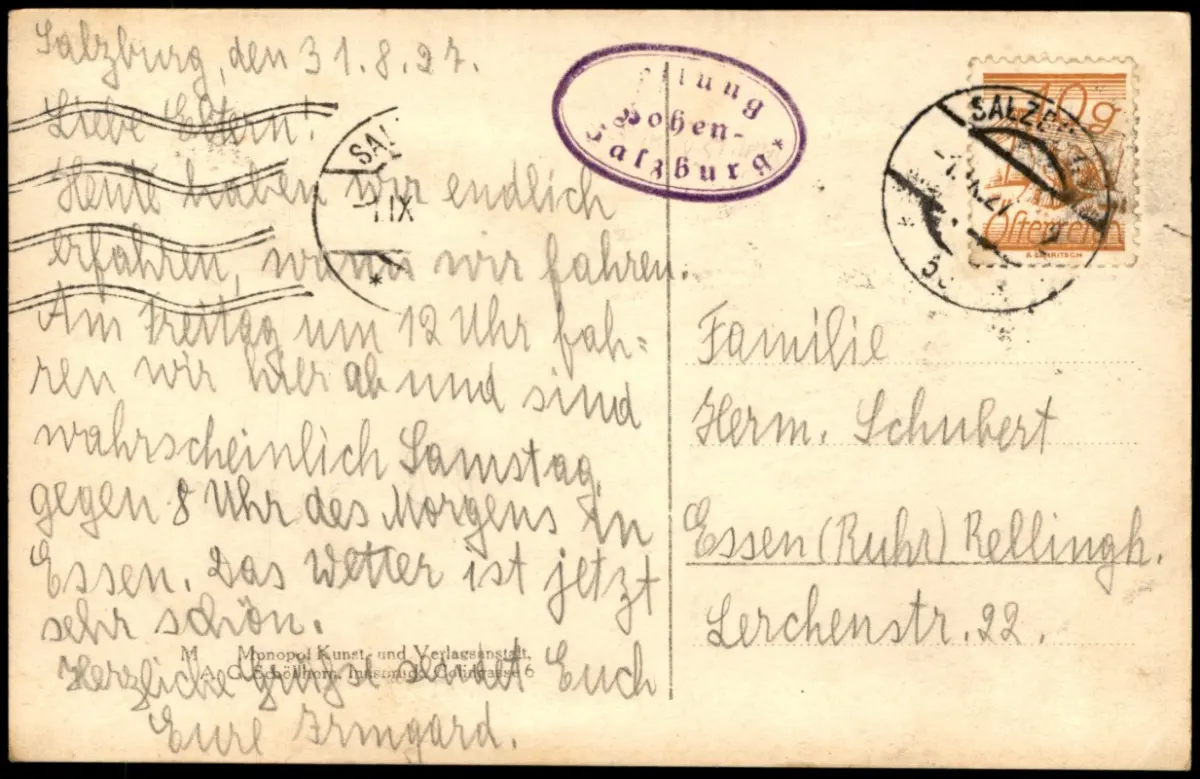 Salzburg, den 31.8.27.
Liebe Eltern!
Heute haben wir endlich
erfahren, wann wir fahren.
Am Freitag um 12 Uhr fah=
ren wir hier ab und sind
wahrscheinlich Samstag
gegen 8 Uhr des Morgens in
Essen. Das Wetter ist jetzt
sehr schön.
Herzliche Grüße sendet Euch
Eure Irmgard.
M Monopol Kunst- und Verlagsanstalt,
A.-G. Schöllhorn, Innsbruck, Colingasse 6
Hohen-
Salzburg *
SAL
IX
SALZB
10g
Österreich
Familie
Herm. Schubert
Essen (Ruhr) Rellingh.
Lerchenstr. 22.